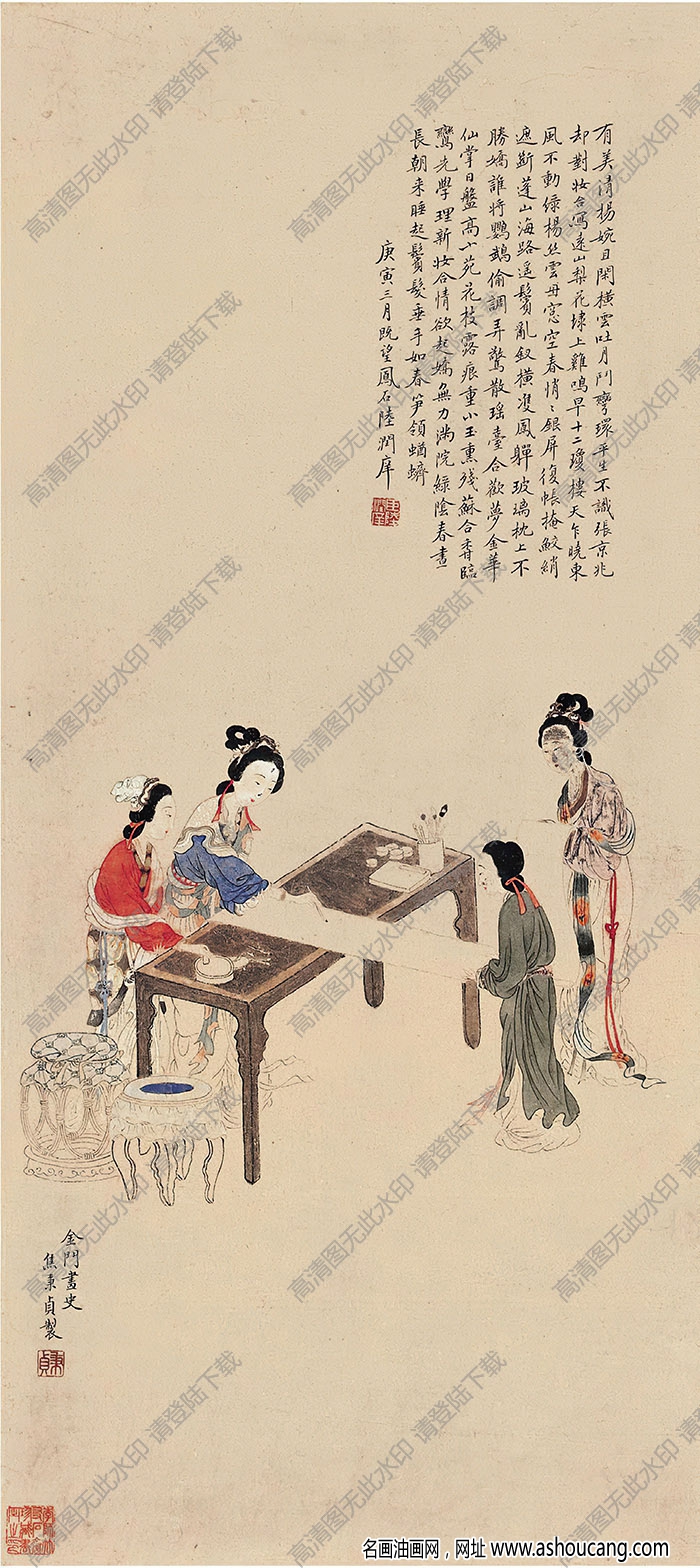 有美清揚婉且閑橫雲吐月鬥彎環平生不識張京兆
却對妝台寫遠山梨花埭上雞鳴早十二瓊樓天乍曉東
風不動綠楊丝雲母窓空春悄〻銀屏復帳掩鮫綃
遮斷蓬山海路遥鬢亂釵橫㕠鳳軃玻璃枕上不
勝嬌誰將鸚鵡偷調弄驚散瑶臺合歡夢金華
仙掌日盤高小苑花枝露痕重小玉熏殘蘇合香臨
鸞先學理新妝合情欲起嬌無力滿院緑陰春晝
長朝来睡起鬢髮垂手如春笋領蝤蠐
庚寅三月既望鳳石陸潤庠
金門畫史
焦秉貞製
秉貞
高清图无此水印 请登陆下载
名画油画网，网址 www.ashoucang.com